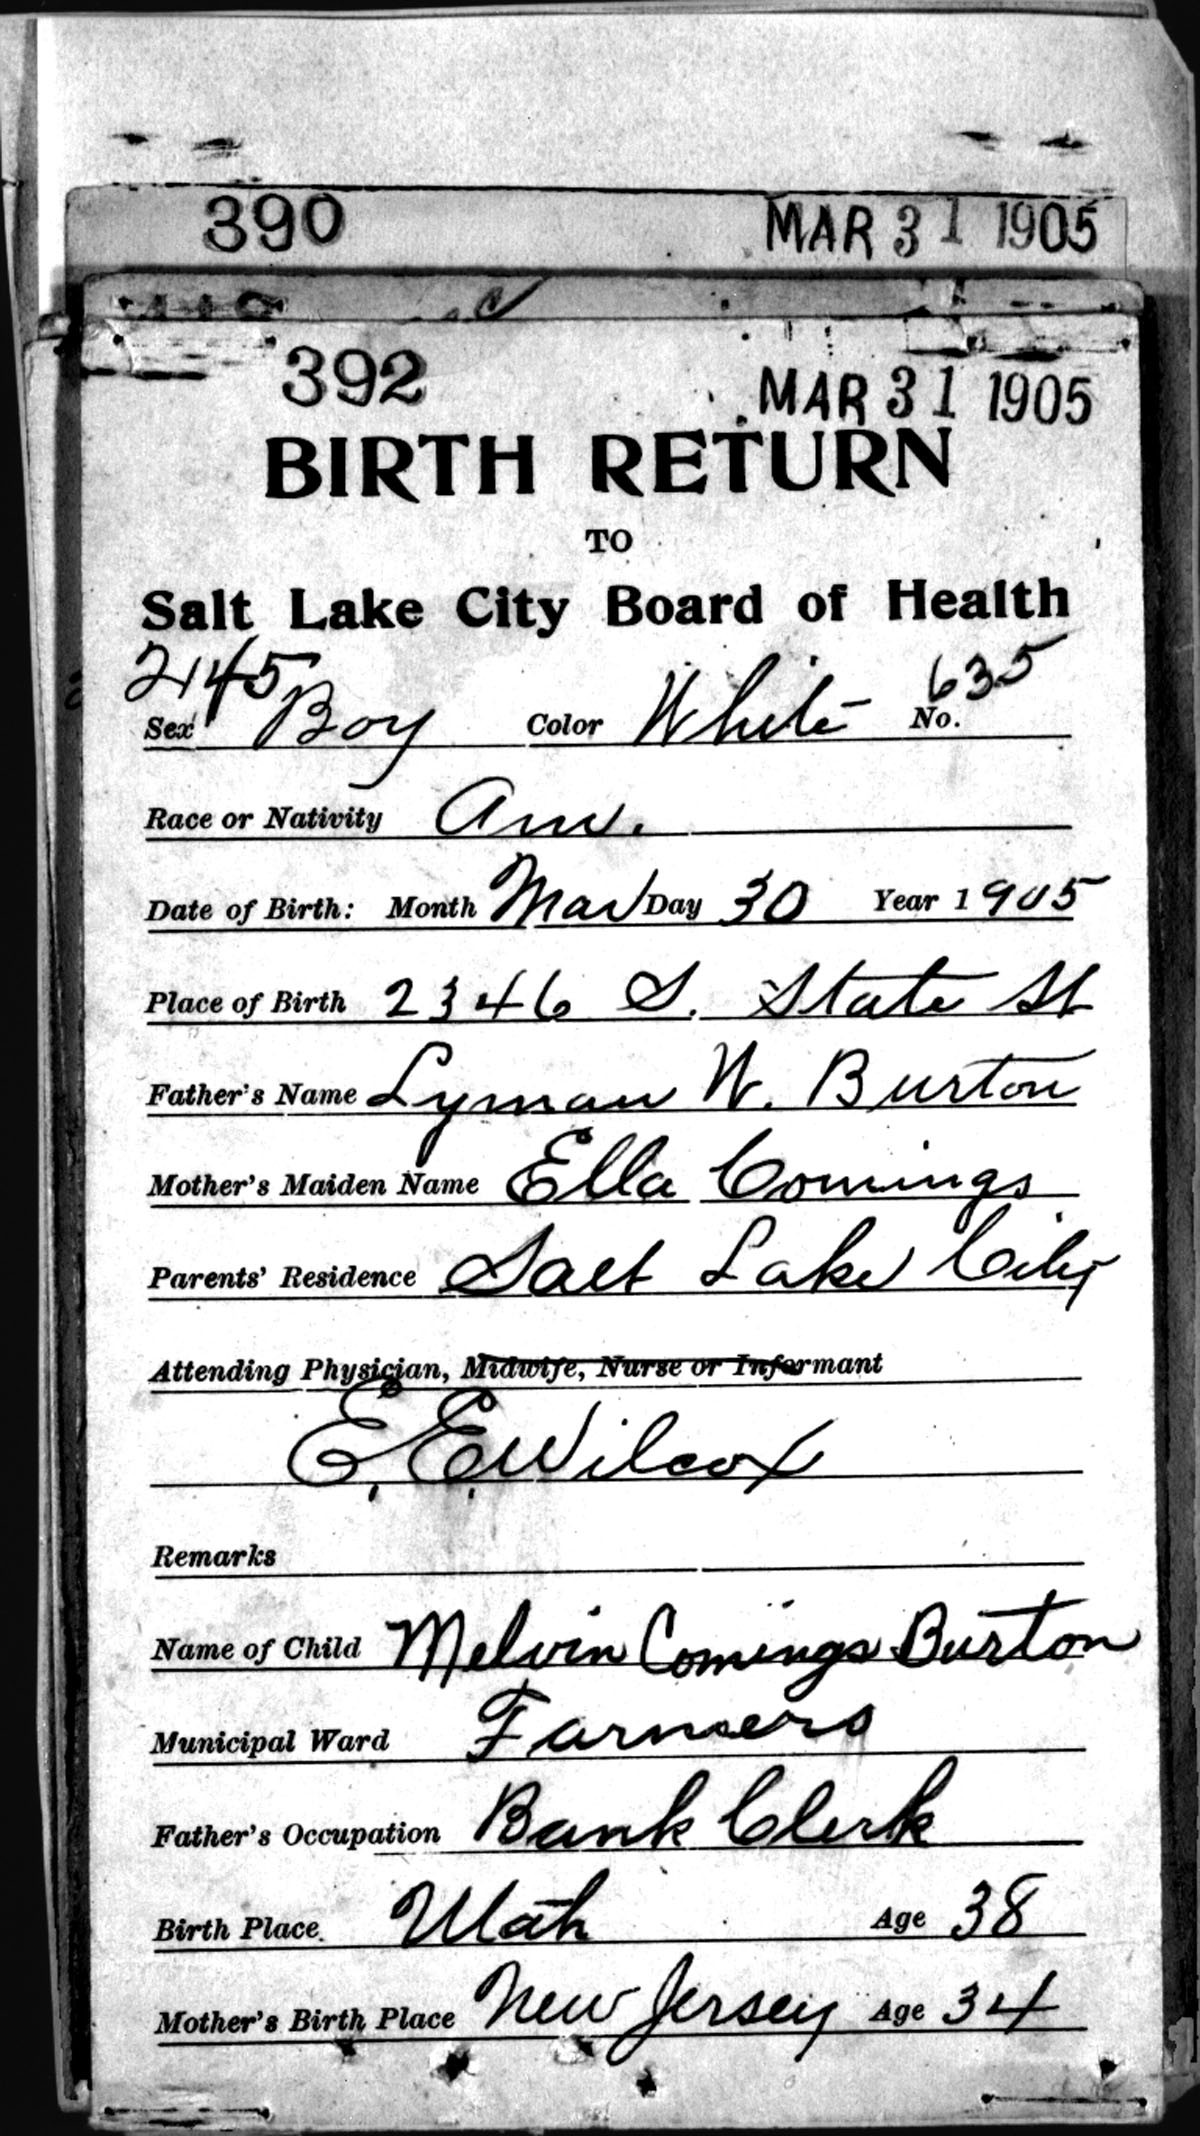 390 MAR 31 1905
392 MAR 31 1905
BIRTH RETURN
TO
Salt Lake City Board of Health
2145 635
Sex Boy Color White No.
Race or Nativity Am.
Date of Birth: Month Mar Day 30 Year 1905
Place of Birth 2346 S. State St
Father's Name Lyman W. Burton
Mother's Maiden Name Ella Comings
Parents' Residence Salt Lake City
Attending Physician, Midwife, Nurse or Informant
E. E. Wilcox
Remarks
Name of Child Melvin Comings Burton
Municipal Ward Farmers
Father's Occupation Bank Clerk
Birth Place Utah Age 38
Mother's Birth Place New Jersey Age 34